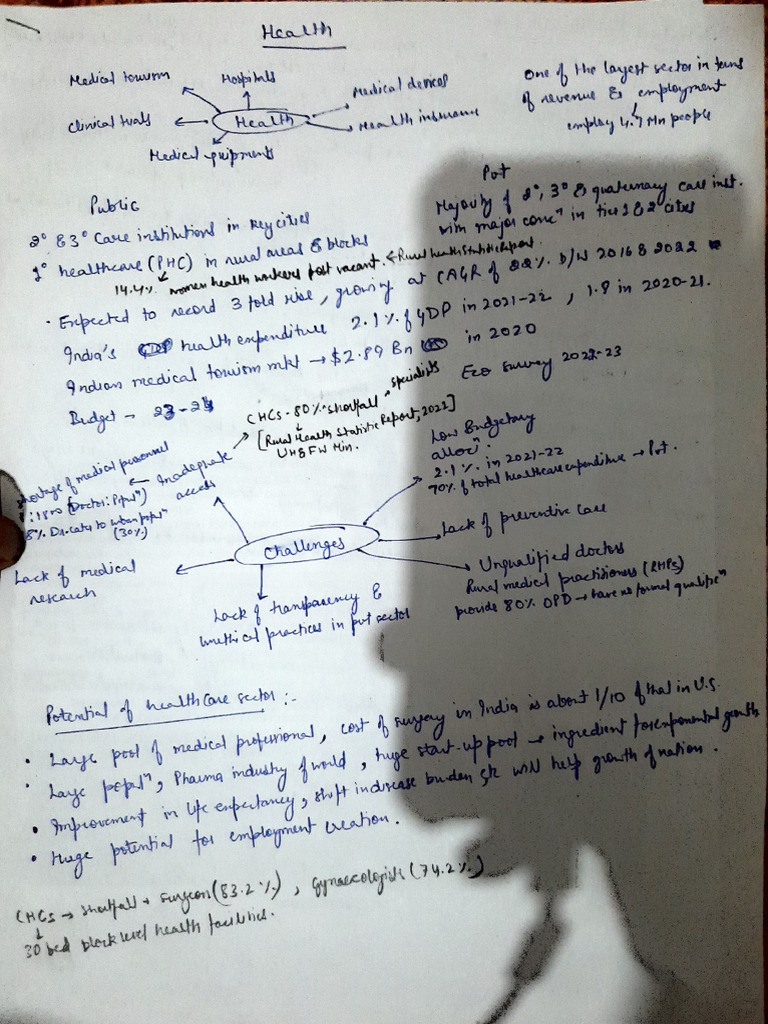 Health
Medical tourism
Hospitals
Medical devices
Clinical trials
Health
Health insurance
Medical equipments
One of the largest sector in terms
of revenue & employment
employ 4.7 Mn people
Public
2° & 3° Care institutions in key cities
1° healthcare (PHC) in rural areas & blocks
14.4% women health workers post vacant. ← Rural Health Statistic Report.
Pvt
Majority of 2°, 3° & quaternary care inst.
with major concⁿ in tier 1 & 2 cities
• Expected to record 3 fold rise, growing at CAGR of 22% b/w 2016 & 2022
India's health expenditure 2.1% of GDP in 2021-22, 1.8 in 2020-21.
Indian medical tourism mkt → $2.89 Bn in 2020
Budget - 23-24
Eco survey 2022-23
CHCs - 80% shortfall specialists
[Rural Health Statistic Report, 2022]
UH&FW Min.
Shortage of medical personnel
(Doctor: Popⁿ)
to urban popⁿ
(30%)
Inadequate
access
Low Budgetary
allocⁿ:
2.1% in 2021-22
70% of total healthcare expenditure → Pvt.
Challenges
Lack of preventive care
Unqualified doctors
Rural medical practitioners (RMPs)
provide 80% OPD → have no formal qualificⁿ
Lack of medical
research
Lack of transparency &
unethical practices in pvt sector
Potential of healthcare sector :-
• Large pool of medical professional, cost of surgery in India is about 1/10 of that in U.S.
• Large popⁿ, Pharma industry of world, huge start-up pool → ingredient for exponential growth
• Improvement in life expectancy, shift in disease burden etc will help growth of nation.
• Huge potential for employment creation.
CHCs → shortfall → surgeon (83.2%), Gynaecologists (74.2%)
30 bed block level health facilities.